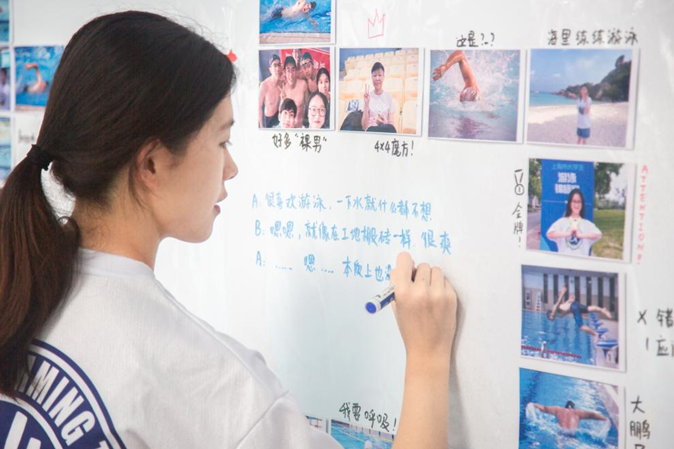 这是??
海里练练游泳
好多"裸男"
4x4魔方!
A: 很喜欢游泳,一下水就什么都不想
B: 嗯嗯,就像在工地搬砖一样 很爽
A: …… 嗯 …… 本质上也
金牌!
ATTENTION!
我要呼吸!
大鹏